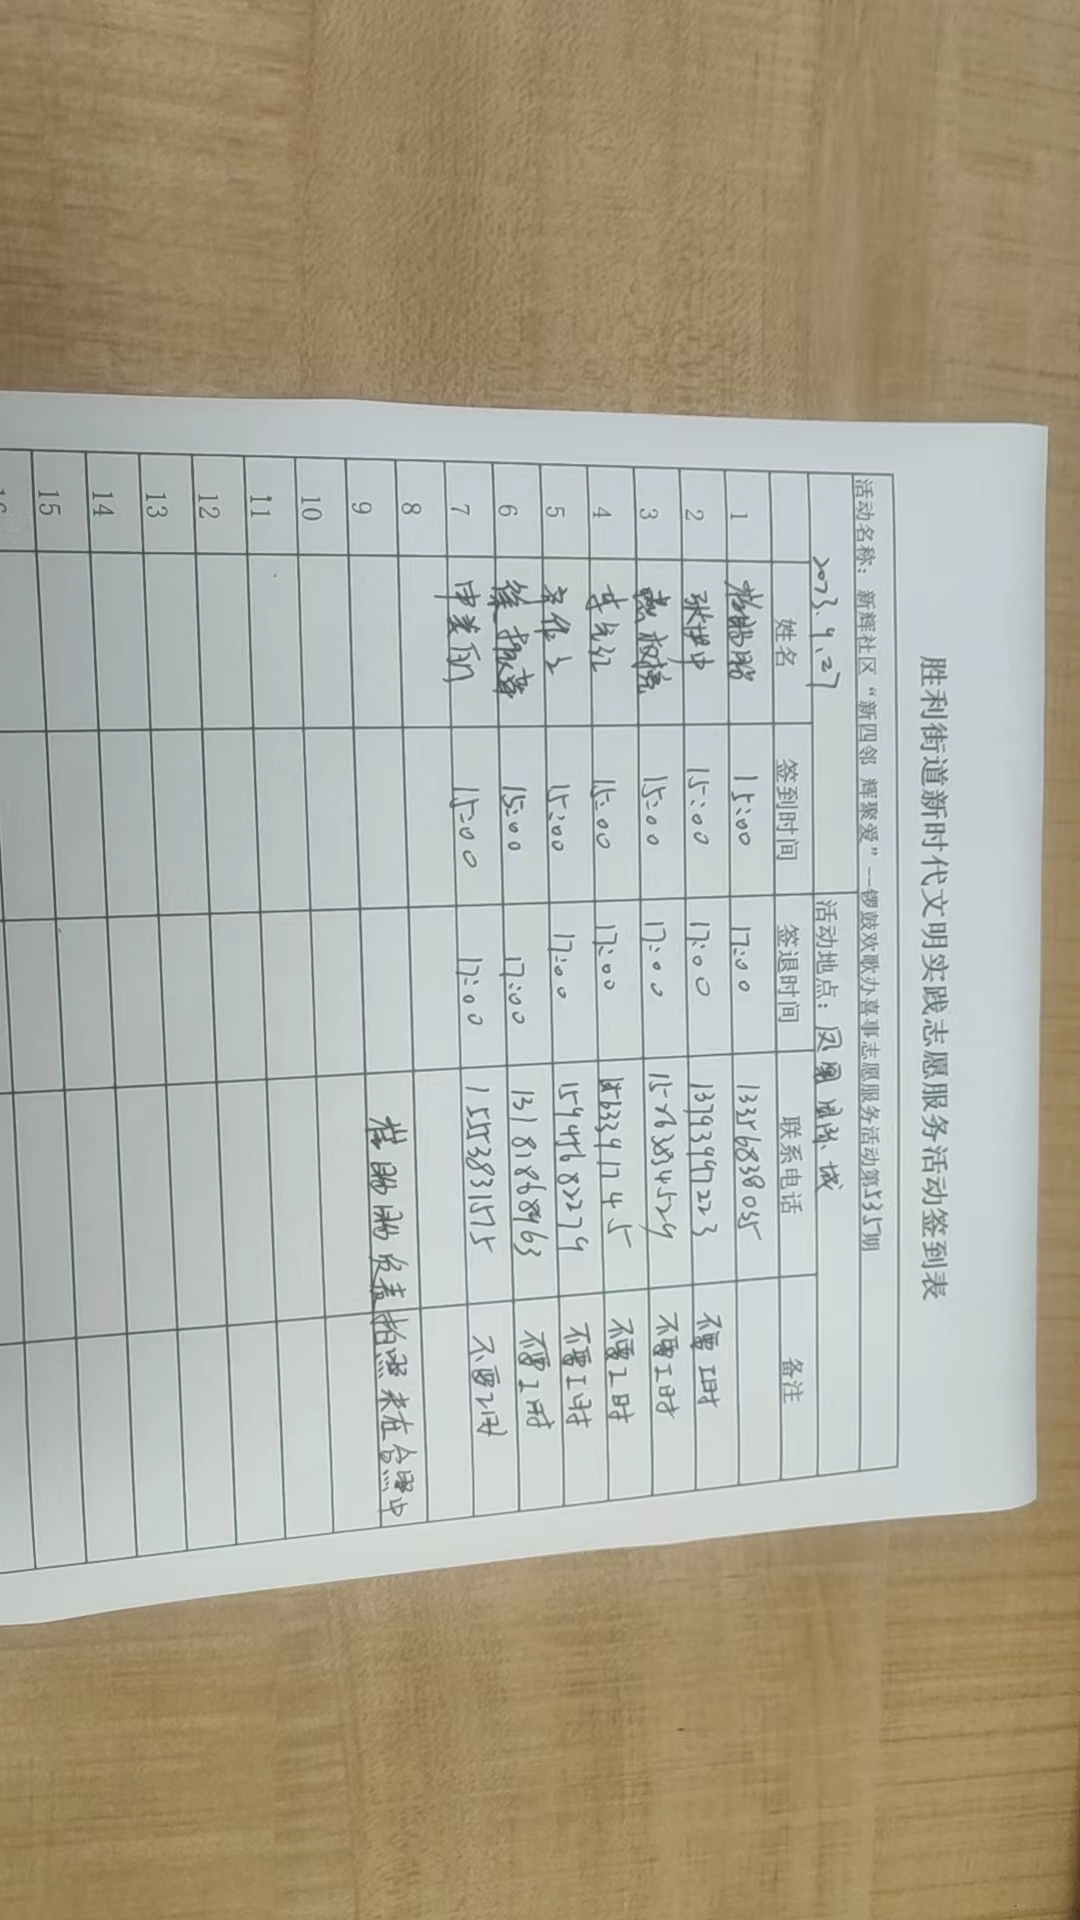 胜利街道新时代文明实践志愿服务活动签到表
活动名称：新辉社区“新四邻 辉聚爱”--锣鼓欢歌办喜事志愿服务活动第535期
2023.9.27 活动地点：凤凰城
姓名 签到时间 签退时间 联系电话 备注
1 15:00 17:00 13356838055
2 张世中 15:00 17:00 13793997223 不要工时
3 15:00 17:00 15263834529 不要工时
4 李先红 15:00 17:00 不要工时
5 15:00 17:00 15945682279 不要工时
6 徐振革 15:00 17:00 13181868963 不要工时
7 申美丽 15:00 17:00 15553831575 不要工时
8
9 负责拍照未在合照中
10
11
12
13
14
15
16